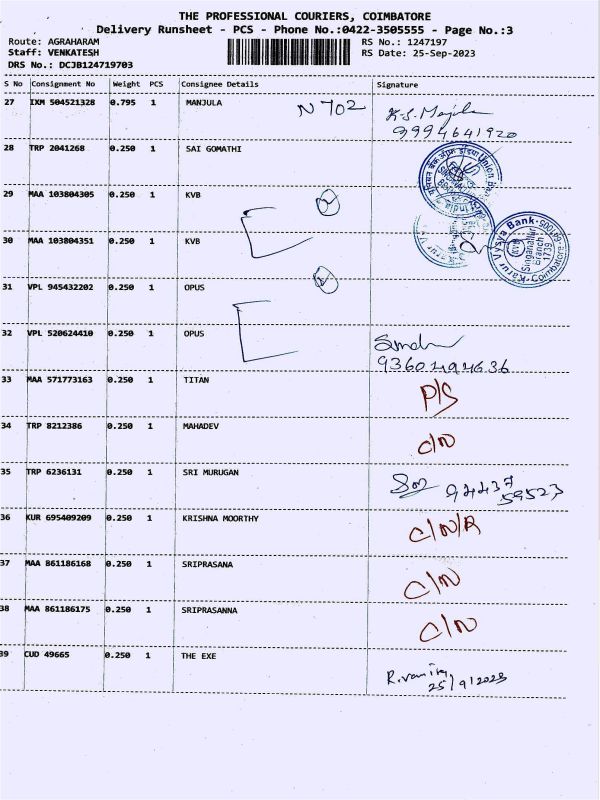 THE PROFESSIONAL COURIERS, COIMBATORE
Delivery Runsheet - PCS - Phone No.:0422-3505555 - Page No.:3
Route: AGRAHARAM RS No.: 1247197
Staff: VENKATESH RS Date: 25-Sep-2023
DRS No.: DCJB124719703
S No Consignment No Weight PCS Consignee Details Signature
27 IXM 504521328 0.795 1 MANJULA N 702
9994641920
28 TRP 2041268 0.250 1 SAI GOMATHI
29 MAA 103804305 0.250 1 KVB 2
30 MAA 103804351 0.250 1 KVB
Karur Vysya Bank
Coimbatore-641005
KVB
Singanallur
Branch
1739
31 VPL 945432202 0.250 1 OPUS 2
32 VPL 520624410 0.250 1 OPUS
33 MAA 571773163 0.250 1 TITAN P/S
34 TRP 8212386 0.250 1 MAHADEV C/N
35 TRP 6236131 0.250 1 SRI MURUGAN 94437
59523
36 KUR 695409209 0.250 1 KRISHNA MOORTHY C/N/R
37 MAA 861186168 0.250 1 SRIPRASANA C/N
38 MAA 861186175 0.250 1 SRIPRASANNA C/N
39 CUD 49665 0.250 1 THE EXE
25/9/2023